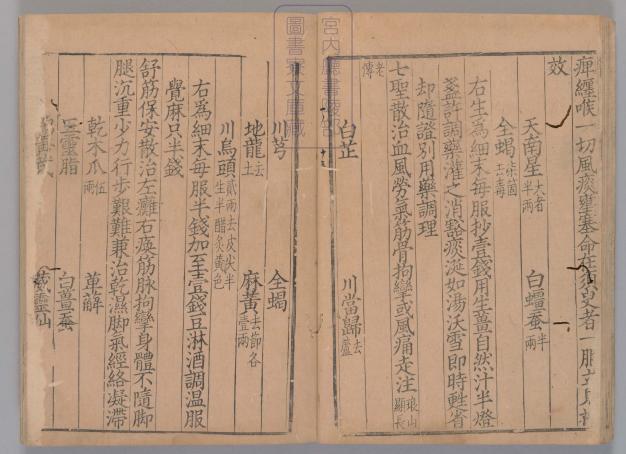 痺纏喉一切風痰壅塞命在須臾者一服立見
效
天南星大者半兩 白殭蠶半兩
全蝎去毒
右生爲細末每服抄壹錢用生薑自然汁半燈
盞許調藥灌之消豁痰涎如湯沃雪即時甦省
却隨證別用藥調理
七聖散治血風勞氣筋骨拘攣或風痛走注琅山顯長
老傳
白芷 川當歸去蘆
川芎 全蝎
地龍去土 麻黃去節各壹兩
川烏頭貳兩去皮尖半生半醋炙黃色
右爲細末每服半錢加至壹錢豆淋酒調温服
覺麻只半錢
舒筋保安散治左癱右瘓筋脉拘攣身體不隨脚
腿沉重少力行步艱難兼治乾濕脚氣經絡凝滯
乾木瓜伍兩 萆薢
五靈脂 白殭蠶
威靈仙
宮內廳書陵部
圖書寮文庫藏